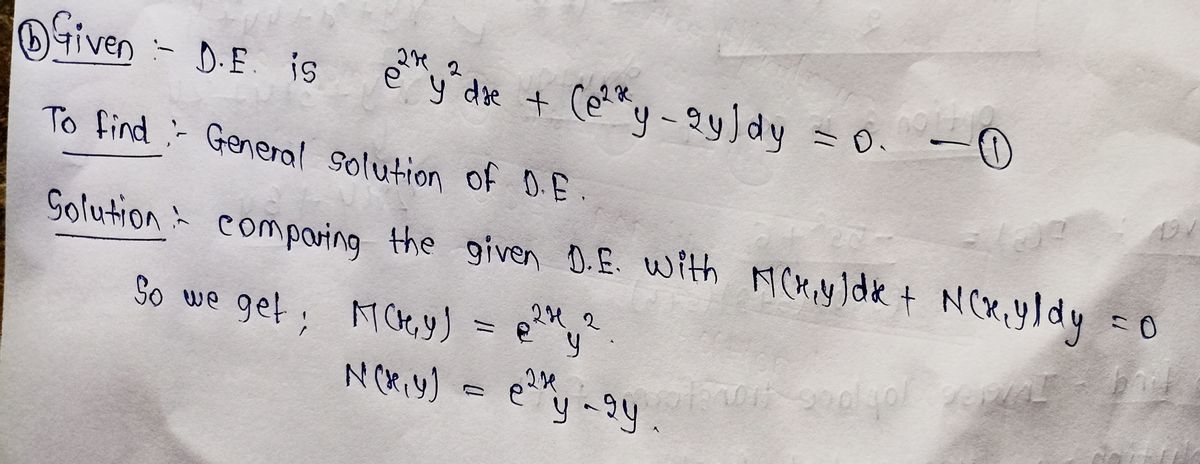 ⓑ Given :- D.E. is e^{2x}y^2 dx + (e^{2x}y - 2y)dy = 0. — ①
To find :- General solution of D.E.
Solution :- comparing the given D.E. with M(x,y)dx + N(x,y)dy = 0
So we get ; M(x,y) = e^{2x}y^2.
N(x,y) = e^{2x}y - 2y.